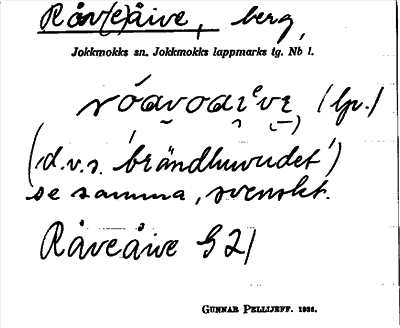 Råv(e)åive, berg,
Jokkmokks sn. Jokkmokks lappmarks tg. Nb l.
(lp.)
(d.v.s. 'brändhuvudet')
se samma, svenskt.
Råveåive G 21
GUNNAR PELLIJEFF. 1936.